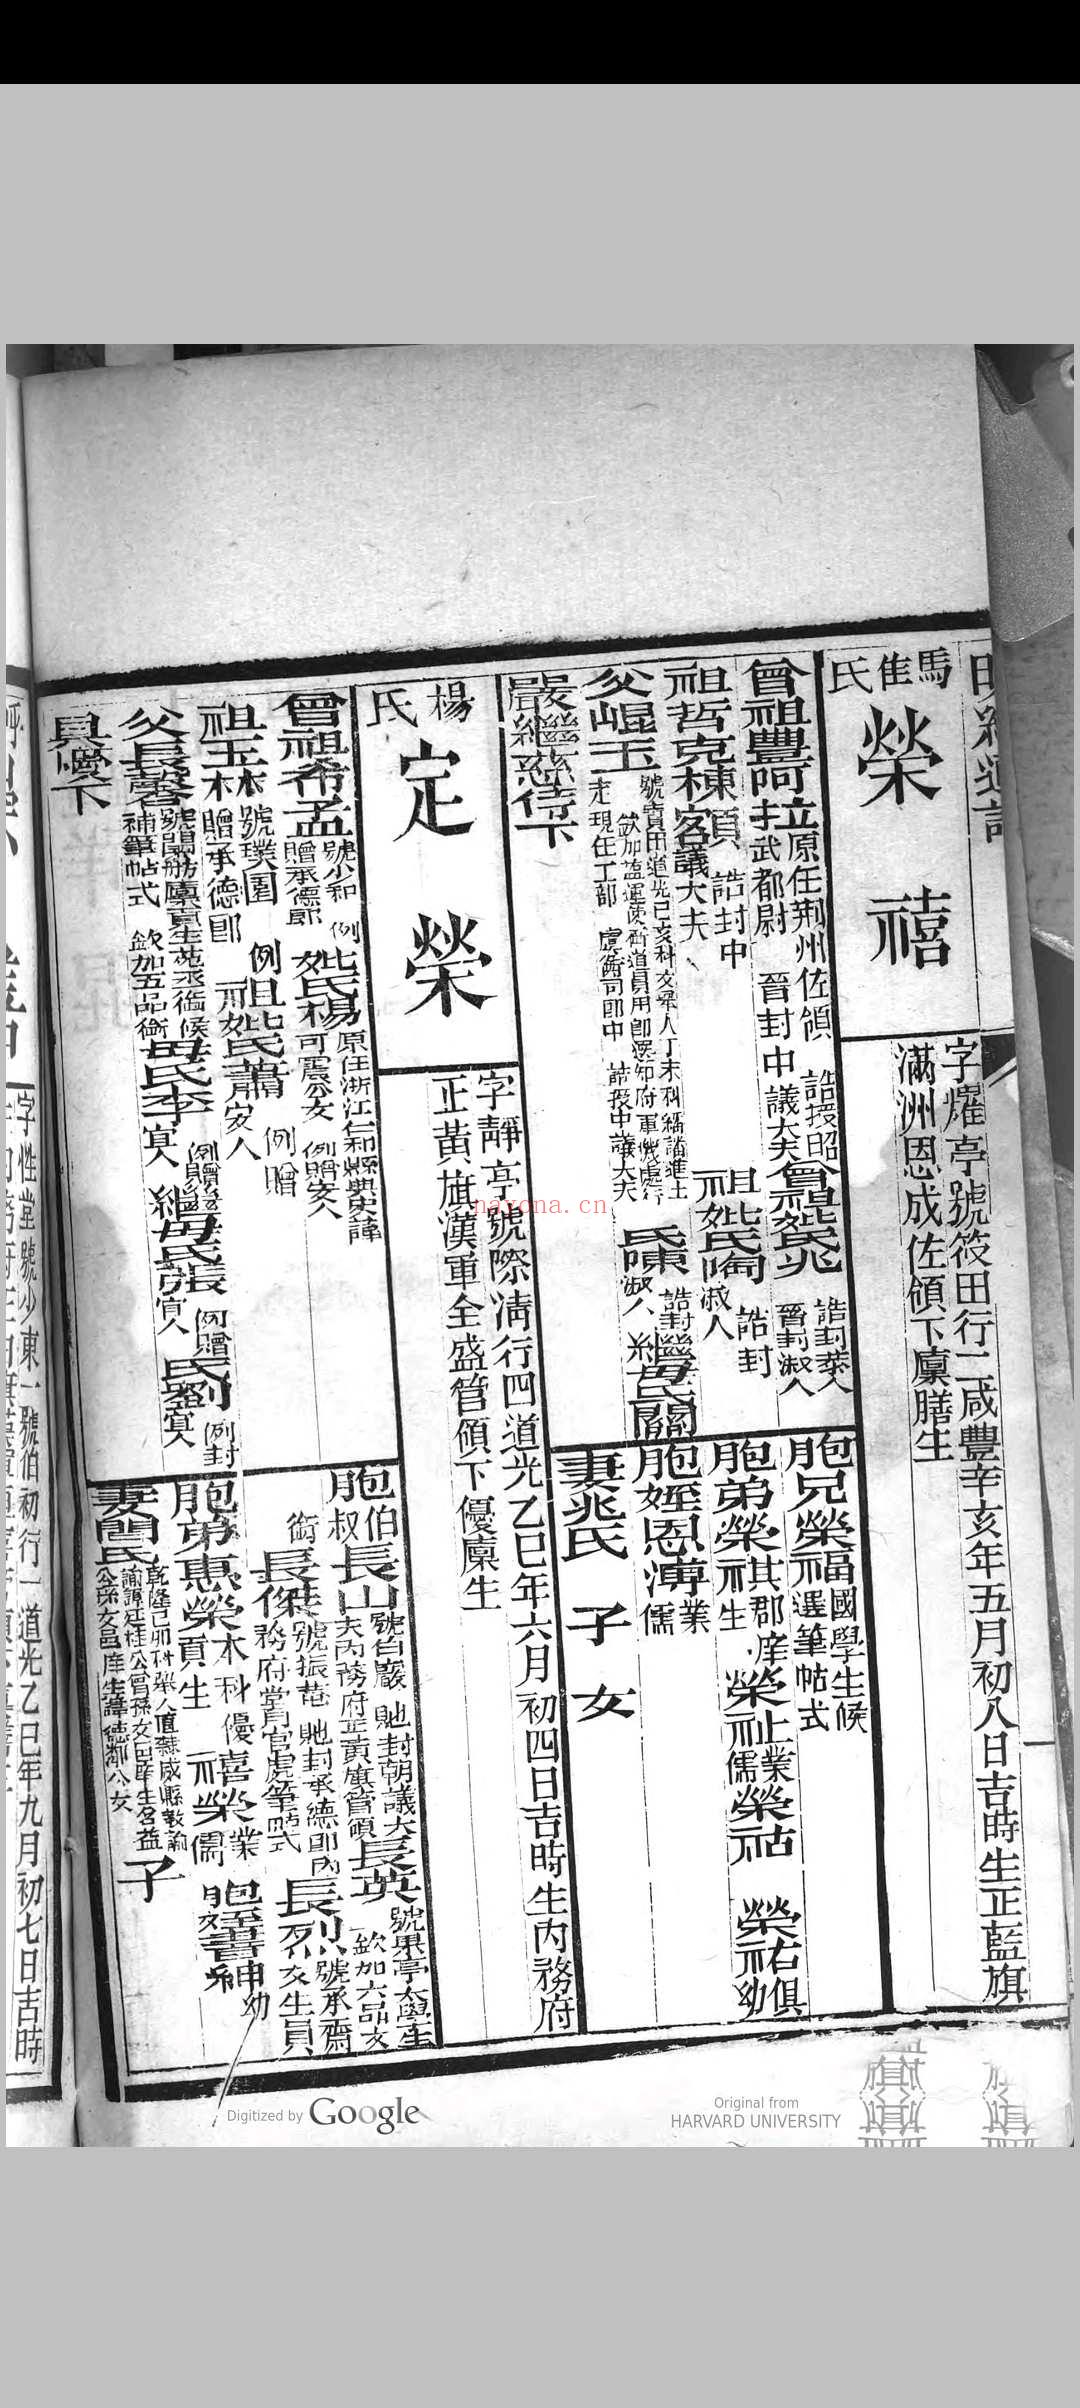 明經通譜
馬佳氏
榮禧
字燿亭號筱田行二咸豐辛亥年五月初八日吉時生正藍旗
滿洲恩成佐領下廩膳生
曾祖豐
原任荆州佐領
武都尉 晉封中議大夫
誥授昭
曾祖妣氏兆
誥封恭人
晉封淑人
祖哲克棟額
誥封中
議大夫
祖妣氏陶
誥封
淑人
父崐玉
現任工部
虞衡司郎中
誥授中議大夫
氏陳
誥封
淑人
繼母氏關
嚴繼慈侍下
胞兄榮福
國學生候
選筆帖式
胞弟榮祺
郡庠
生
榮祉
業
儒
榮祜
榮祐
俱
幼
胞姪恩溥
業
儒
妻兆氏
子
女
楊氏
定榮
字靜亭號際清行四道光乙巳年六月初四日吉時生内務府
正黄旗漢軍全盛管領下優廩生
曾祖希孟
號小和 例
贈承德郎
妣氏楊
原任浙江仁和縣典史諱
可震公女 例贈安人
祖玉林
號璞園 例
贈承德郎
祖妣氏蕭
例贈
安人
父長馨
補筆帖式 欽加五品銜
母氏李
例贈
宜人
繼母氏張
例贈
宜人
氏劉
例封
宜人
具慶下
胞伯
叔
長山
號岱巖 貤封朝議大
夫内務府正黄旗管領
長英
號果亭太學生
欽加六品文
銜
長傑
號振菴 貤封承德郎内
務府堂官處筆帖式
長烈
號承齋
文生員
胞弟惠榮
本科優
貢生
禧榮
業
儒
胞姪書紳
幼
妻閻氏
乾隆己卯科舉人直隸咸縣教諭
諱廷桂公曾孫女邑庠生名益
公孫女邑庠生諱德鄰公女
子
字性堂號少東一號伯初行一道光乙巳年九月初七日吉時
nayona.cn
Digitized by Google
Original from
HARVARD UNIVERSITY